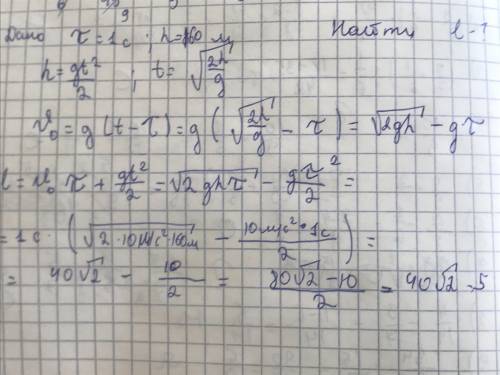 Дано τ = 1 с ; h = 160 м Найти l - ?
h = gt²/2 ; t = √(2h/g)
v₀ = g (t - τ) = g (√(2h/g) - τ) = √(2gh) - gτ
l = v₀ τ + gt²/2 = √(2ghτ) - gτ²/2 =
= 1 с · (√(2 · 10 м/с² · 160 м) - 10 м/с² · 1 с/2) =
= 40√2 - 10/2 = (80√2 - 10)/2 = 40√2 - 5